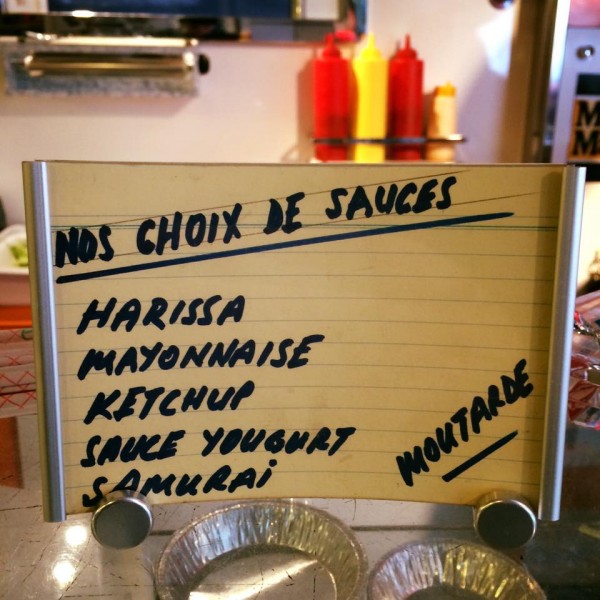 NOS CHOIX DE SAUCES
HARISSA
MAYONNAISE
KETCHUP
SAUCE YOUGURT
SAMURAi
MOUTARDE